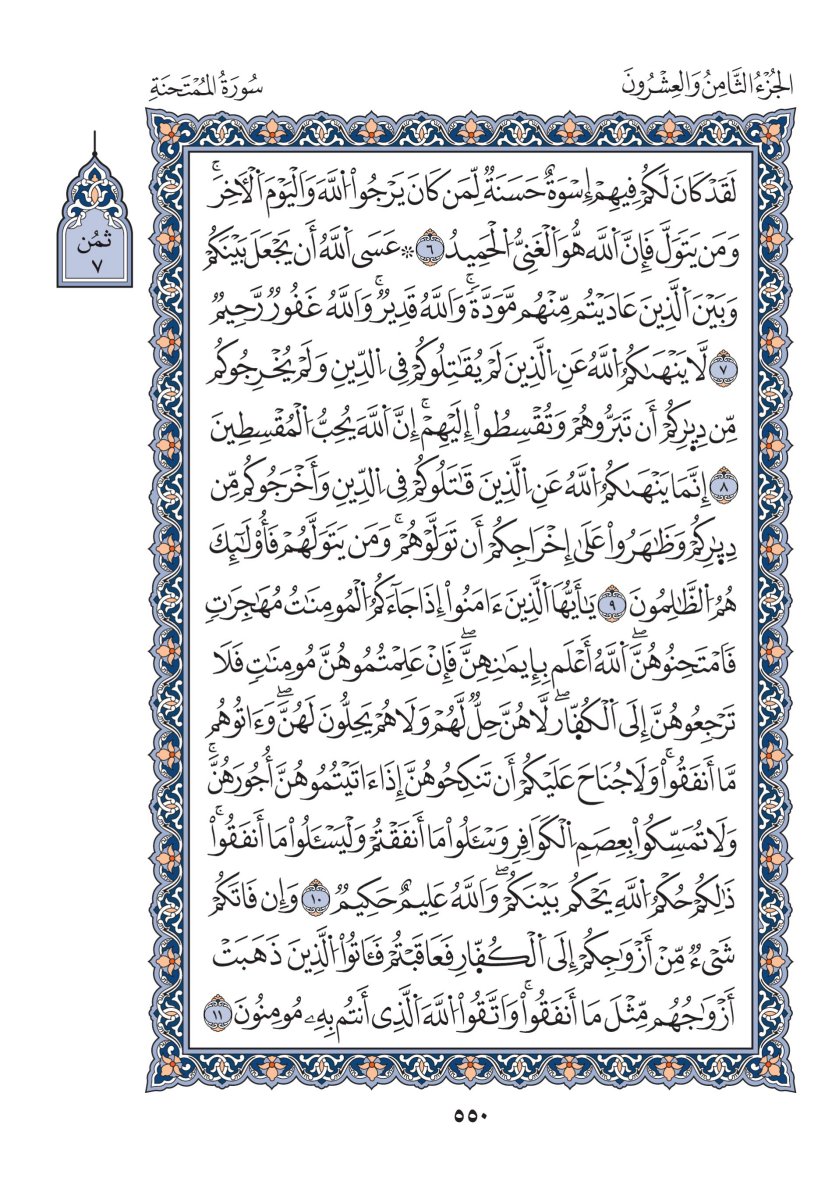 الجُزْءُ الثَّامِنُ وَالعِشْرُونَ
سُورَةُ المُمْتَحنَةِ
لَقَدْ كَانَ لَكُمْ فِيهِمْ إِسْوَةٌ حَسَنَةٌ لِّمَن كَانَ يَرْجُواْ اُللَّهَ وَالْيَوْمَ اَلْأٓخِرَۚ
وَمَن يَتَوَلَّ فَإِنَّ اَللَّه هُّوَ اَلْغَنِيُّ اُلْحَمِيدُ ٦ ۞ عَسَى اَللَّهُ أَن يَجْعَلَ بَيْنَكُمْ
وَبَيْنَ اَلَّذِينَ عَادَيْتُم مِّنْهُم مَّوَدَّةًۚ وَاللَّهُ قَدِيرٌۚ وَاللَّهُ غَفُورٌ رَّحِيمٌ
٧ لَّا يَنْهَىٰكُمُ اُللَّهُ عَنِ اِلَّذِينَ لَمْ يُقَٰتِلُوكُمْ فِي اِلدِّينِ وَلَمْ يُخْرِجُوكُم
مِّن دِيٰ۪رِكُمْ أَن تَبَرُّوهُمْ وَتُقْسِطُواْ إِلَيْهِمْۚ إِنَّ اَللَّهَ يُحِبُّ اُلْمُقْسِطِينَ
٨ إِنَّمَا يَنْهَىٰكُمُ اُللَّهُ عَنِ اِلَّذِينَ قَٰتَلُوكُمْ فِي اِلدِّينِ وَأَخْرَجُوكُم مِّن
دِيٰ۪رِكُمْ وَظَٰهَرُواْ عَلَىٰ إِخْرَاجِكُمْ أَن تَوَلَّوْهُمْۚ وَمَن يَتَوَلَّهُمْ فَأُوْلَٰٓئِكَ
هُمُ اُلظَّٰلِمُونَ ٩ يَٰأَيُّهَا اَلَّذِينَ ءَامَنُواْ إِذَا جَآءَكُمُ اُلْمُومِنَٰتُ مُهَٰجِرَٰتٍ
فَامْتَحِنُوهُنَّۖ اَللَّهُ أَعْلَم بِإِيمَٰنِهِنَّۖ فَإِنْ عَلِمْتُمُوهُنَّ مُومِنَٰتٍ فَلَا
تَرْجِعُوهُنَّ إِلَى اَلْكُفّ۪ارۖ لَّا هُنَّ حِلٌّ لَّهُمْ وَلَا هُمْ يَحِلُّونَ لَهُنَّۖ وَءَاتُوهُم
مَّا أَنفَقُواْۚ وَلَا جُنَاحَ عَلَيْكُمْ أَن تَنكِحُوهُنَّ إِذَا ءَاتَيْتُمُوهُنَّ أُجُورَهُنَّۚ
وَلَا تُمَسِّكُواْ بِعِصَمِ اِلْكَوَافِرِ وَسْـَٔلُواْ مَا أَنفَقْتُمْ وَلْيَسْـَٔلُواْ مَا أَنفَقُواْۚ
ذَٰلِكُمْ حُكْمُ اُللَّهِ يَحْكُم بَيْنَكُمْۖ وَاللَّهُ عَلِيمٌ حَكِيمٌ ١٠ وَإِن فَاتَكُمْ
شَيْءٌ مِّنْ أَزْوَٰجِكُمْ إِلَى اَلْكُفّ۪ارِ فَعَاقَبْتُمْ فَـَٔاتُواْ اُلَّذِينَ ذَهَبَتْ
أَزْوَٰجُهُم مِّثْلَ مَا أَنفَقُواْۚ وَاتَّقُواْ اُللَّهَ اَلَّذِي أَنتُم بِهِۦ مُومِنُونَ ١١
ثُمُن
٧
٥٥٠